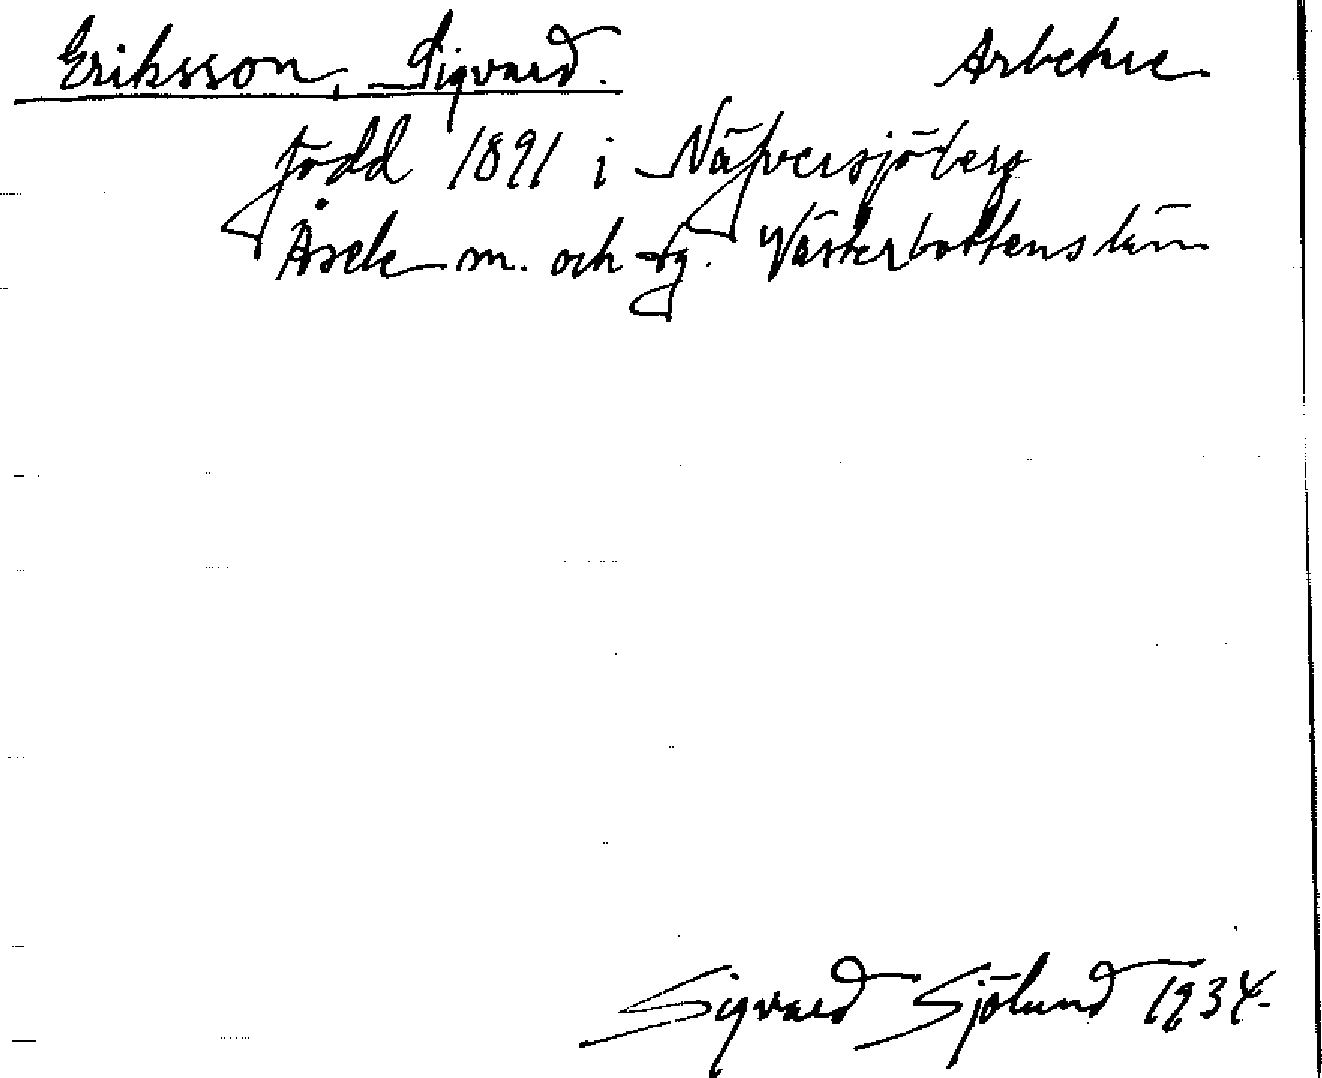 Eriksson, Sigvard. Arbetare
född 1891 i Näfversjöberg
Åsele m. och sg. Västerbottens län
Sigvard Sjölund 1934.